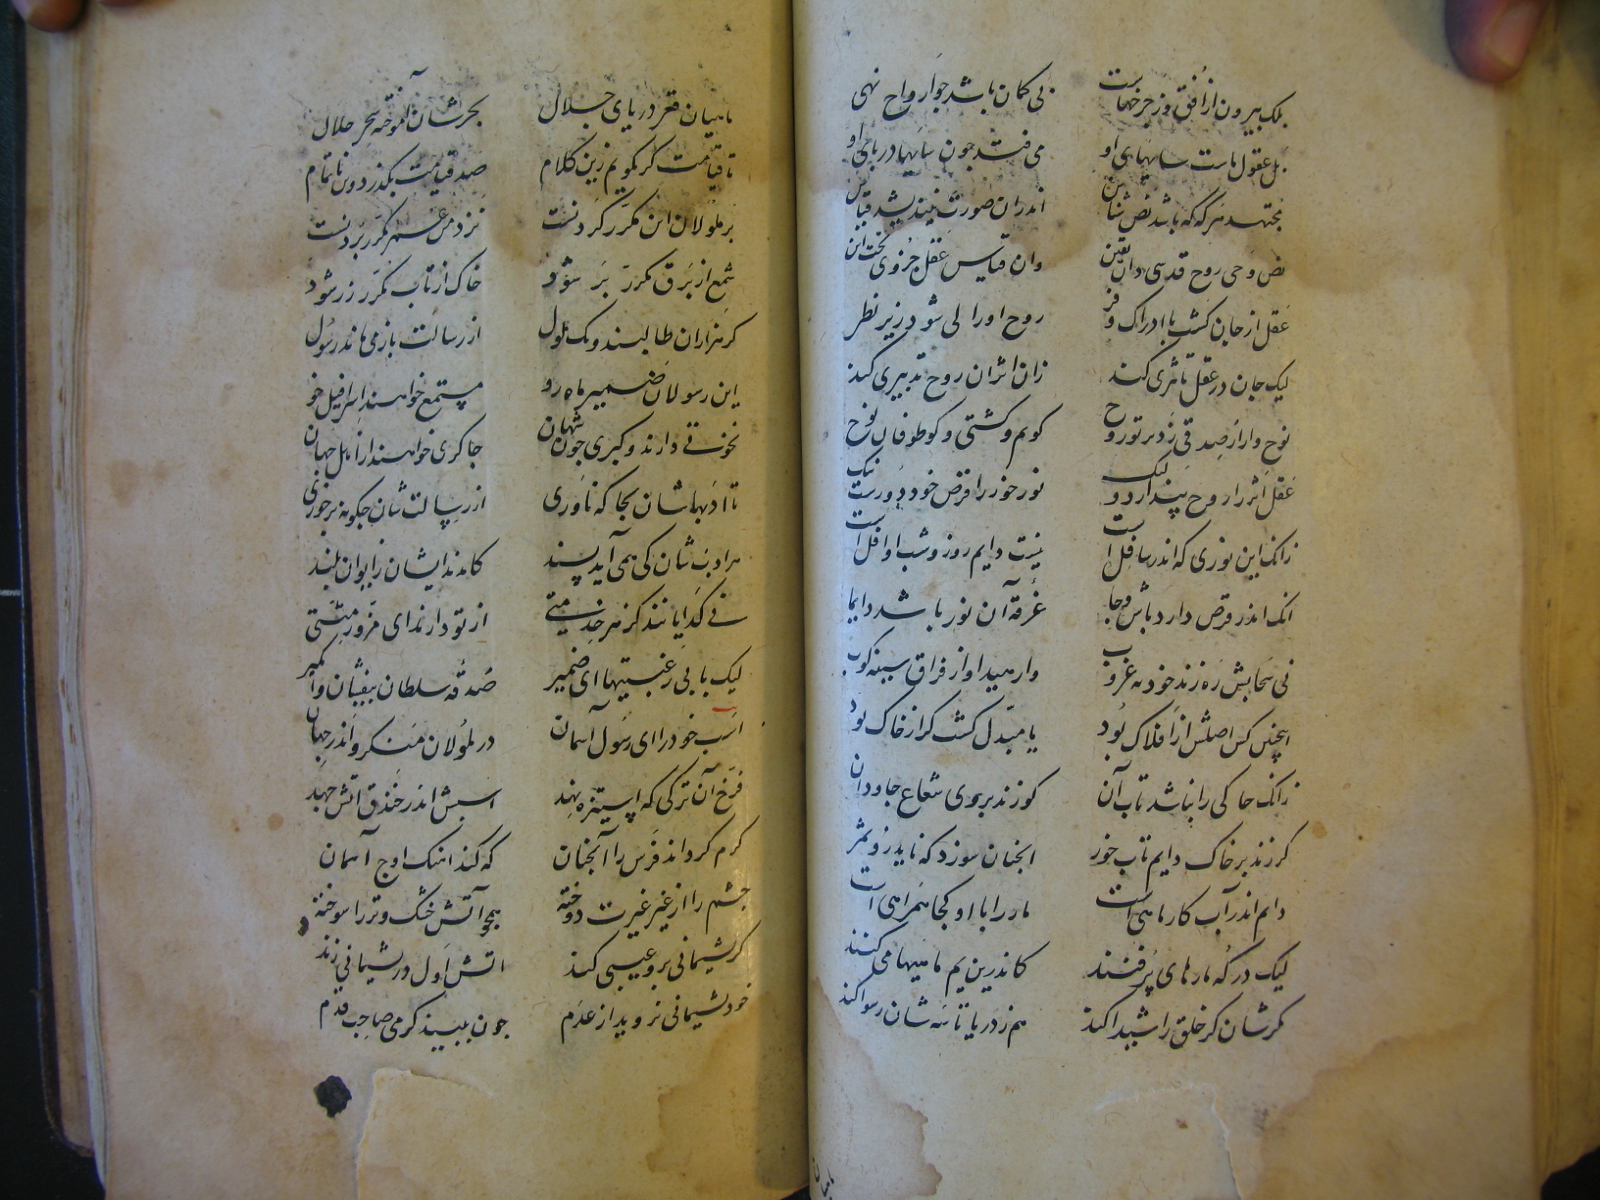 بلک بیرون از افق وز چرخهاست بی کمان باشد جو ارواح نهی
بل عقول ماست سایهای او می فتد چون سایها در پای او
مجتهد هر که که باشد نص شناس اندران صورت نیندیشد قیاس
نص وحی روح قدسی دان یقین وان قیاس عقل جزوی تحت این
عقل از جان کشت با ادراک و فر روح او را لی شود زیر نظر
لیک جان در عقل تاثیری کند زان اثر آن روح تدبیری کند
نوح وار ار صدقی زد در تو روح کو یم و کشتی و کو طوفان نوح
عقل اثر را روح پندارد ولیک نور خور را قرص خود دورست نیک
زانک این نوری که اندر سافل است نیست دایم روز و شب او افل است
انک اندر قرص دارد باش و جا غرقه آن نور باشد دایما
نی سحابش ره زند خود نه غروب وارهید او از فراق سینه کوب
اینچنین کس اصلش از افلاک بود یا مبدل کشت کر از خاک بود
زانک خاکی را نباشد تاب آن کو زند بر وی شعاع جاودان
کر زند بر خاک دایم تاب خور انچنان سوزد که ناید زو ثمر
دایم اندر آب کار ماهی است مار را با او کجا همراهی است
لیک در که مارهای پر فنند کاندرین یم ماهیها می کنند
مکرشان کر خلق را شیدا کند هم ز دریا تاسه شان رسوا کند
ماهیان قعر دریای جلال بحرشان آموخته سحر حلال
تا قیامت کر بکویم زین کلام صد قیامت بکذرد وین ناتمام
بر ملولان این مکرر کردنست نزد من عمر مکرر بردنست
شمع از برق مکرر بر شود خاک از تاب مکرر زر شود
کر هزاران طالبند و یک ملول از رسالت باز می ماند رسول
این رسولان ضمیر راز کو مستمع خواهند اسرافیل خو
نخوتی دارند و کبری چون شهان چاکری خواهند از اهل جهان
تا ادبهاشان بجا که ناوری از رسالت شان چکونه بر خوری
هر ادب شان کی همی آید پسند کامدند ایشان ز ایوان بلند
نی کدایانند کز هر خدمتی از تو دارند ای مزور منتی
لیک با بی رغبتیها ای ضمیر صدقه سلطان بیفشان وامکیر
اسب خود را ای رسول آسمان در ملولان منکر و اندر جهان
فرخ آن ترکی که استیزه نهد اسبش اندر خندق اتش جهد
کرم کرداند فرس را آنچنان که کند اهنک اوج آسمان
چشم را از غیر و غیرت دوخته همچو آتش خشک و تر را سوخته
کر پشیمانی برو عیبی کند اتش اول در پشیمانی زند
خود پشیمانی نروید از عدم چون ببیند کرمی صاحب قدم